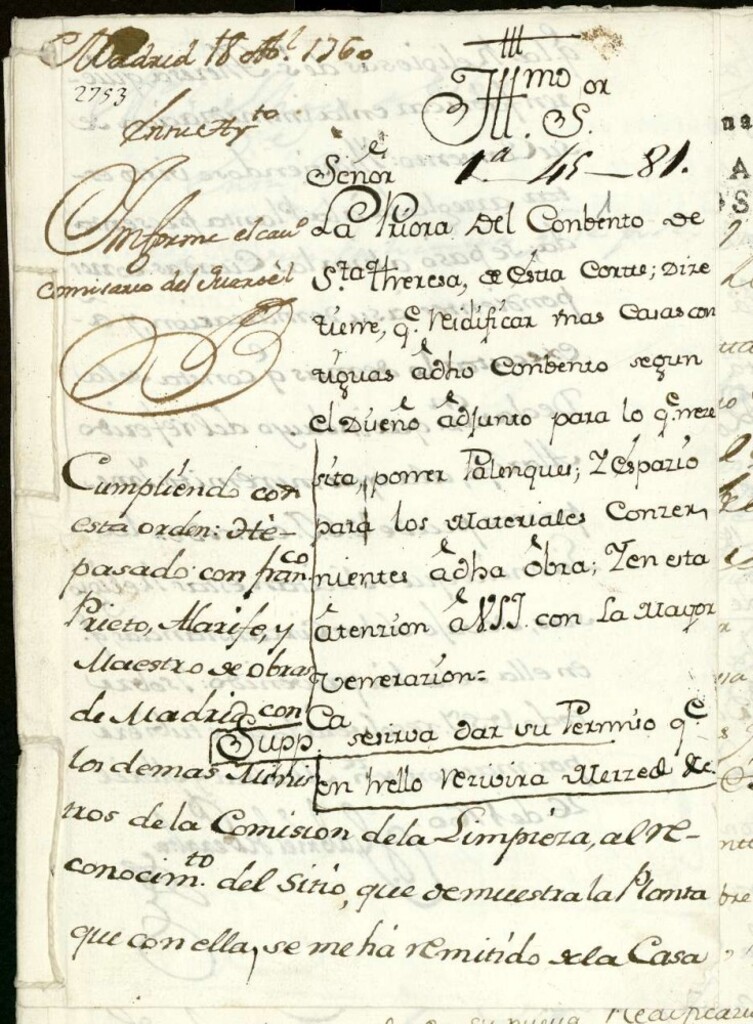 Madrid 18 Ab.l 1760
2753
En su Ay.to
Informe el cau.o
comisario del Quartel
Ill.mo S.or
Señor
1.a 45 – 81.
La Priora del Conbento de
S.ta Theresa, de esta Corte; Dize
tiene, q.e Reidificar unas Casas con
tiguas a dho Conbento segun
el Diseño adjunto para lo q.e neze
sita, poner Palenques, Y espazio
para los Materiales Conzer
nientes a dha obra; Y en esta
atenzion a V.S.I. con La Mayor
venerazion=
Supp.ca se sirva dar su Permiso q.e
en hello Rezivira Merzed &c.
Cumpliendo con
esta orden: He
pasado con fran.co
Prieto, Alarife, y
Maestro de obras
de Madrid, con
los demas Minis
tros de la Comision de la Limpieza, al re-
conocim.to del sitio, que demuestra la Planta
que con ella, se me há remitido de la Casa